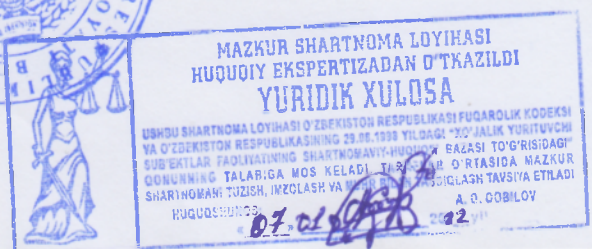 MAZKUR SHARTNOMA LOYIHASI
HUQUQIY EKSPERTIZADAN O'TKAZILDI
YURIDIK XULOSA
USHBU SHARTNOMA LOYIHASI O'ZBEKISTON RESPUBLIKASI FUQAROLIK KODEKSI
VA O'ZBEKISTON RESPUBLIKASINING 29.08.1998 YILDAGI "XO'JALIK YURITUVCHI
SUB'EKTLAR FAOLIYATINING SHARTNOMAVIY-HUQUQIY BAZASI TO'G'RISIDAGI"
QONUNNING TALABIGA MOS KELADI O'RTASIDA MAZKUR
SHARTNOMANI TUZISH, IMZOLASH VA TASDIQLASH TAVSIYA ETILADI
HUQUQSHUNOS A. O. QOBILOV
07 01 12